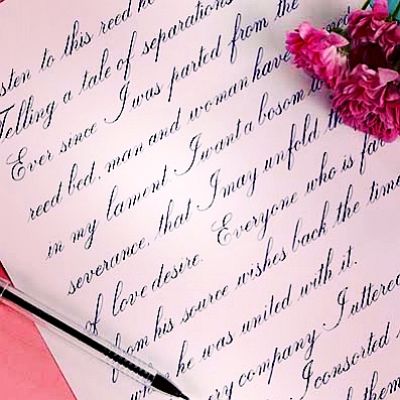 sten to this reed h
Telling a tale of separations
Ever since I was parted from the
reed bed, man and woman have m ned
in my lament I want a bosom to
severance, that I may unfold th
of love desire. Everyone who is far
from his source wishes back the time
he was united with it.
ery company I uttered
I consorted